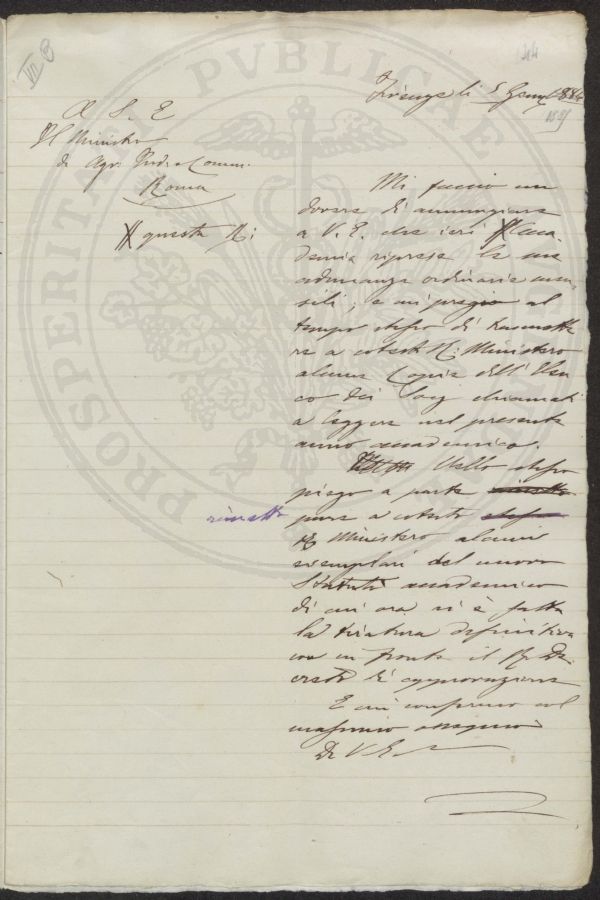 VII 8
Firenze li 5
A S. E.
Il Ministro
di Agr. Ind. e Comm.
Roma
questa R:
Mi faccio un
dovere di annunziare
a V. E. che ieri
demia riprese le sue
adunanze ordinarie men-
sili, e mi pregio al
tempo stesso di trasmette
re a cotesto R. Ministero
alcune Copie dell' Elen
co dei Socj chiamati
a leggere nel presente
anno accademico.
Nello stesso
piego a parte
rimetto
pure a cotesto
R Ministero alcuni
esemplari del nuovo
Statuto accademico
di cui ora si è fatta
la tiratura definitiva
con in fronte il R. De-
creto di approvazione
E mi confermo col
massimo ossequio
Di V. E.
PROSPERITATI PVBLICAE